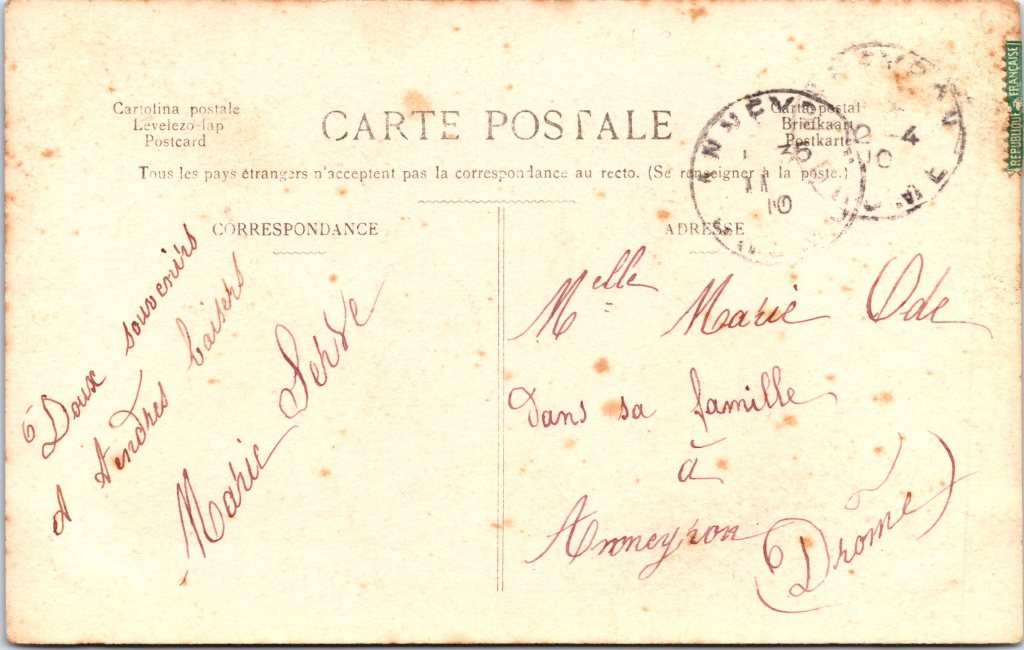 REPUBLIQUE FRANÇAISE
Cartolina postale
Levelezo-lap
Postcard
CARTE POSTALE
Carta postal
Briefkaart
Postkarte
Tous les pays étrangers n'acceptent pas la correspondance au recto. (Se renseigner à la poste.)
CORRESPONDANCE
Doux souvenirs
et tendres baisers
Marie Serve
ADRESSE
Melle Marie Ode
dans sa famille
à
Anneyron
(Drôme)